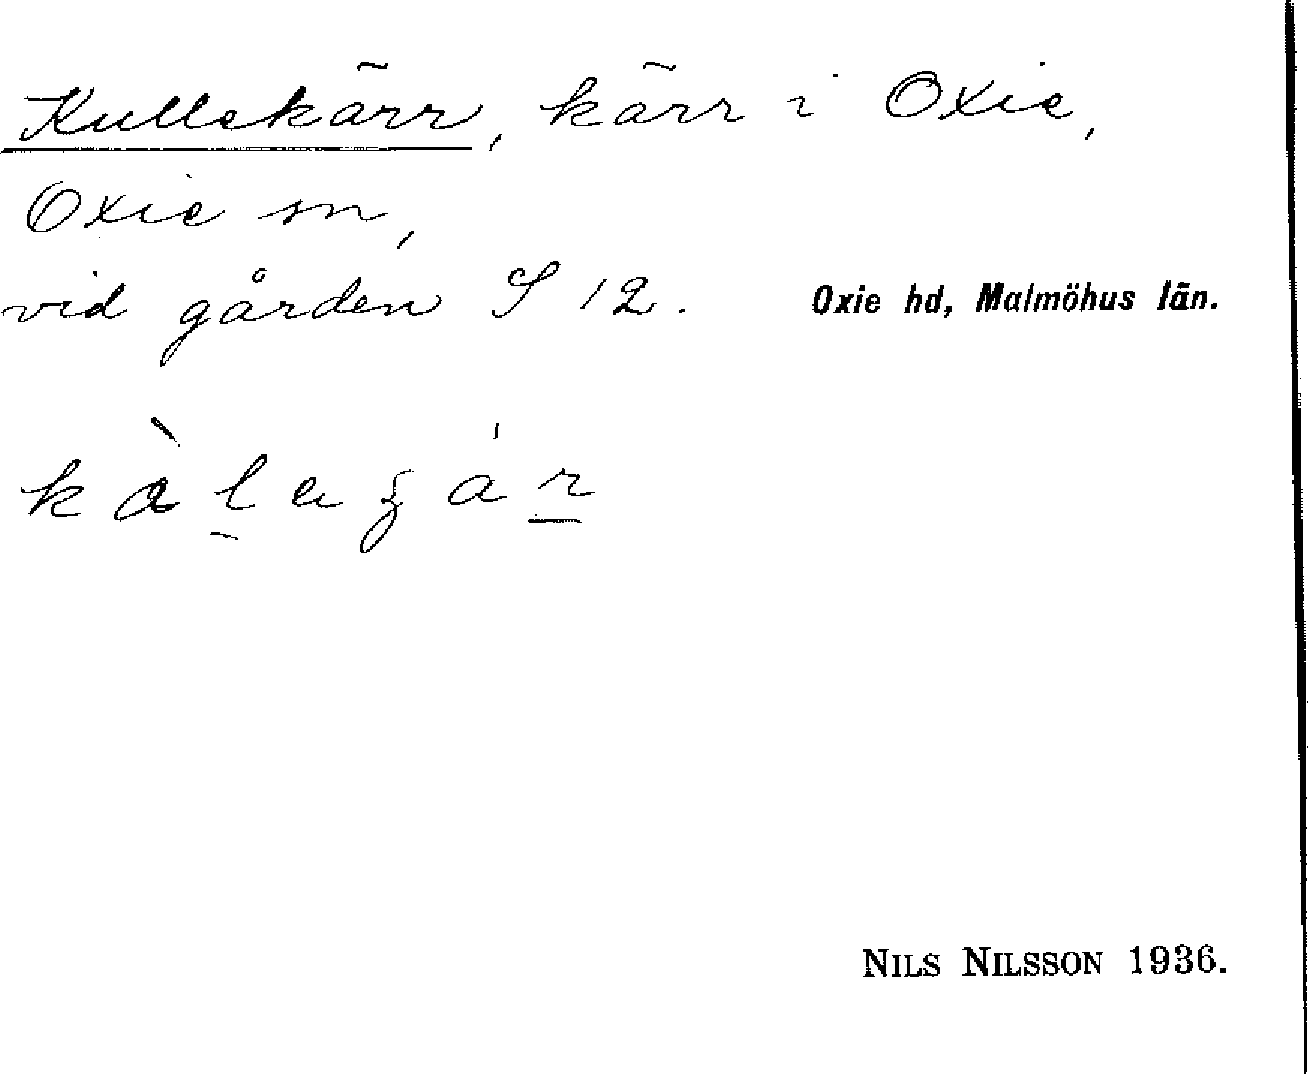 Kullekärr, kärr i Oxie,
Oxie sn,
vid gården S 12. Oxie hd, Malmöhus län.
NILS NILSSON 1936.